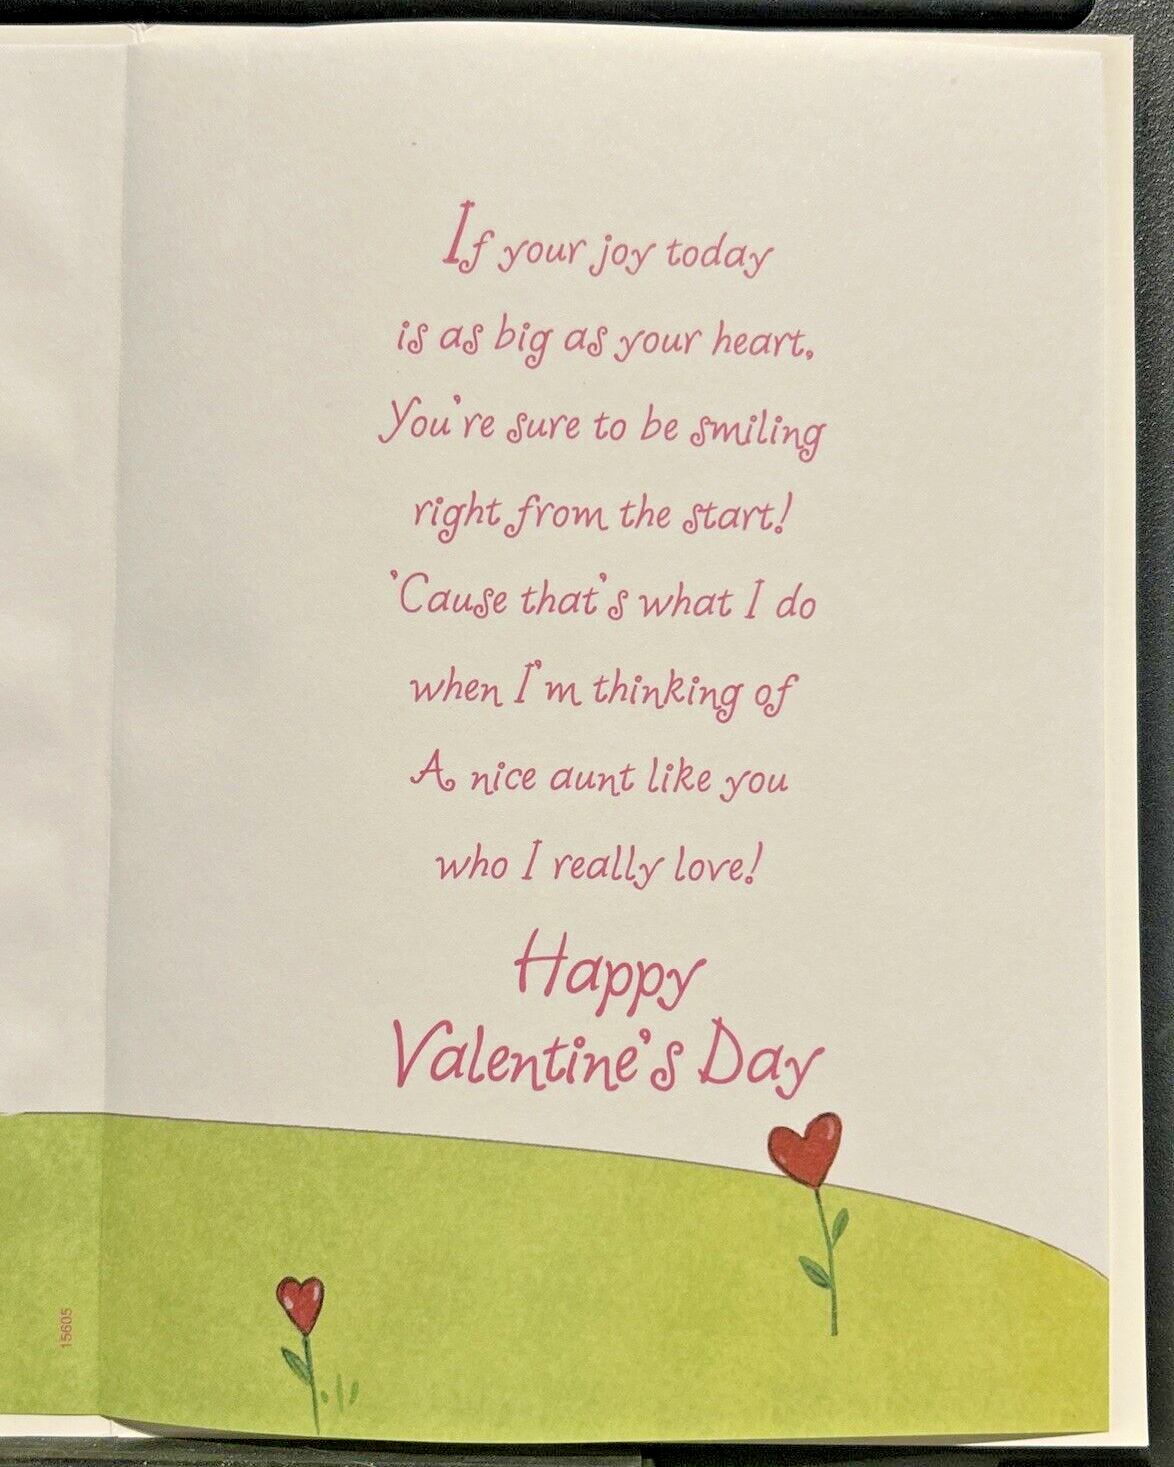 If your joy today
is as big as your heart,
You're sure to be smiling
right from the start!
'Cause that's what I do
when I'm thinking of
A nice aunt like you
who I really love!
Happy
Valentine's Day
15605